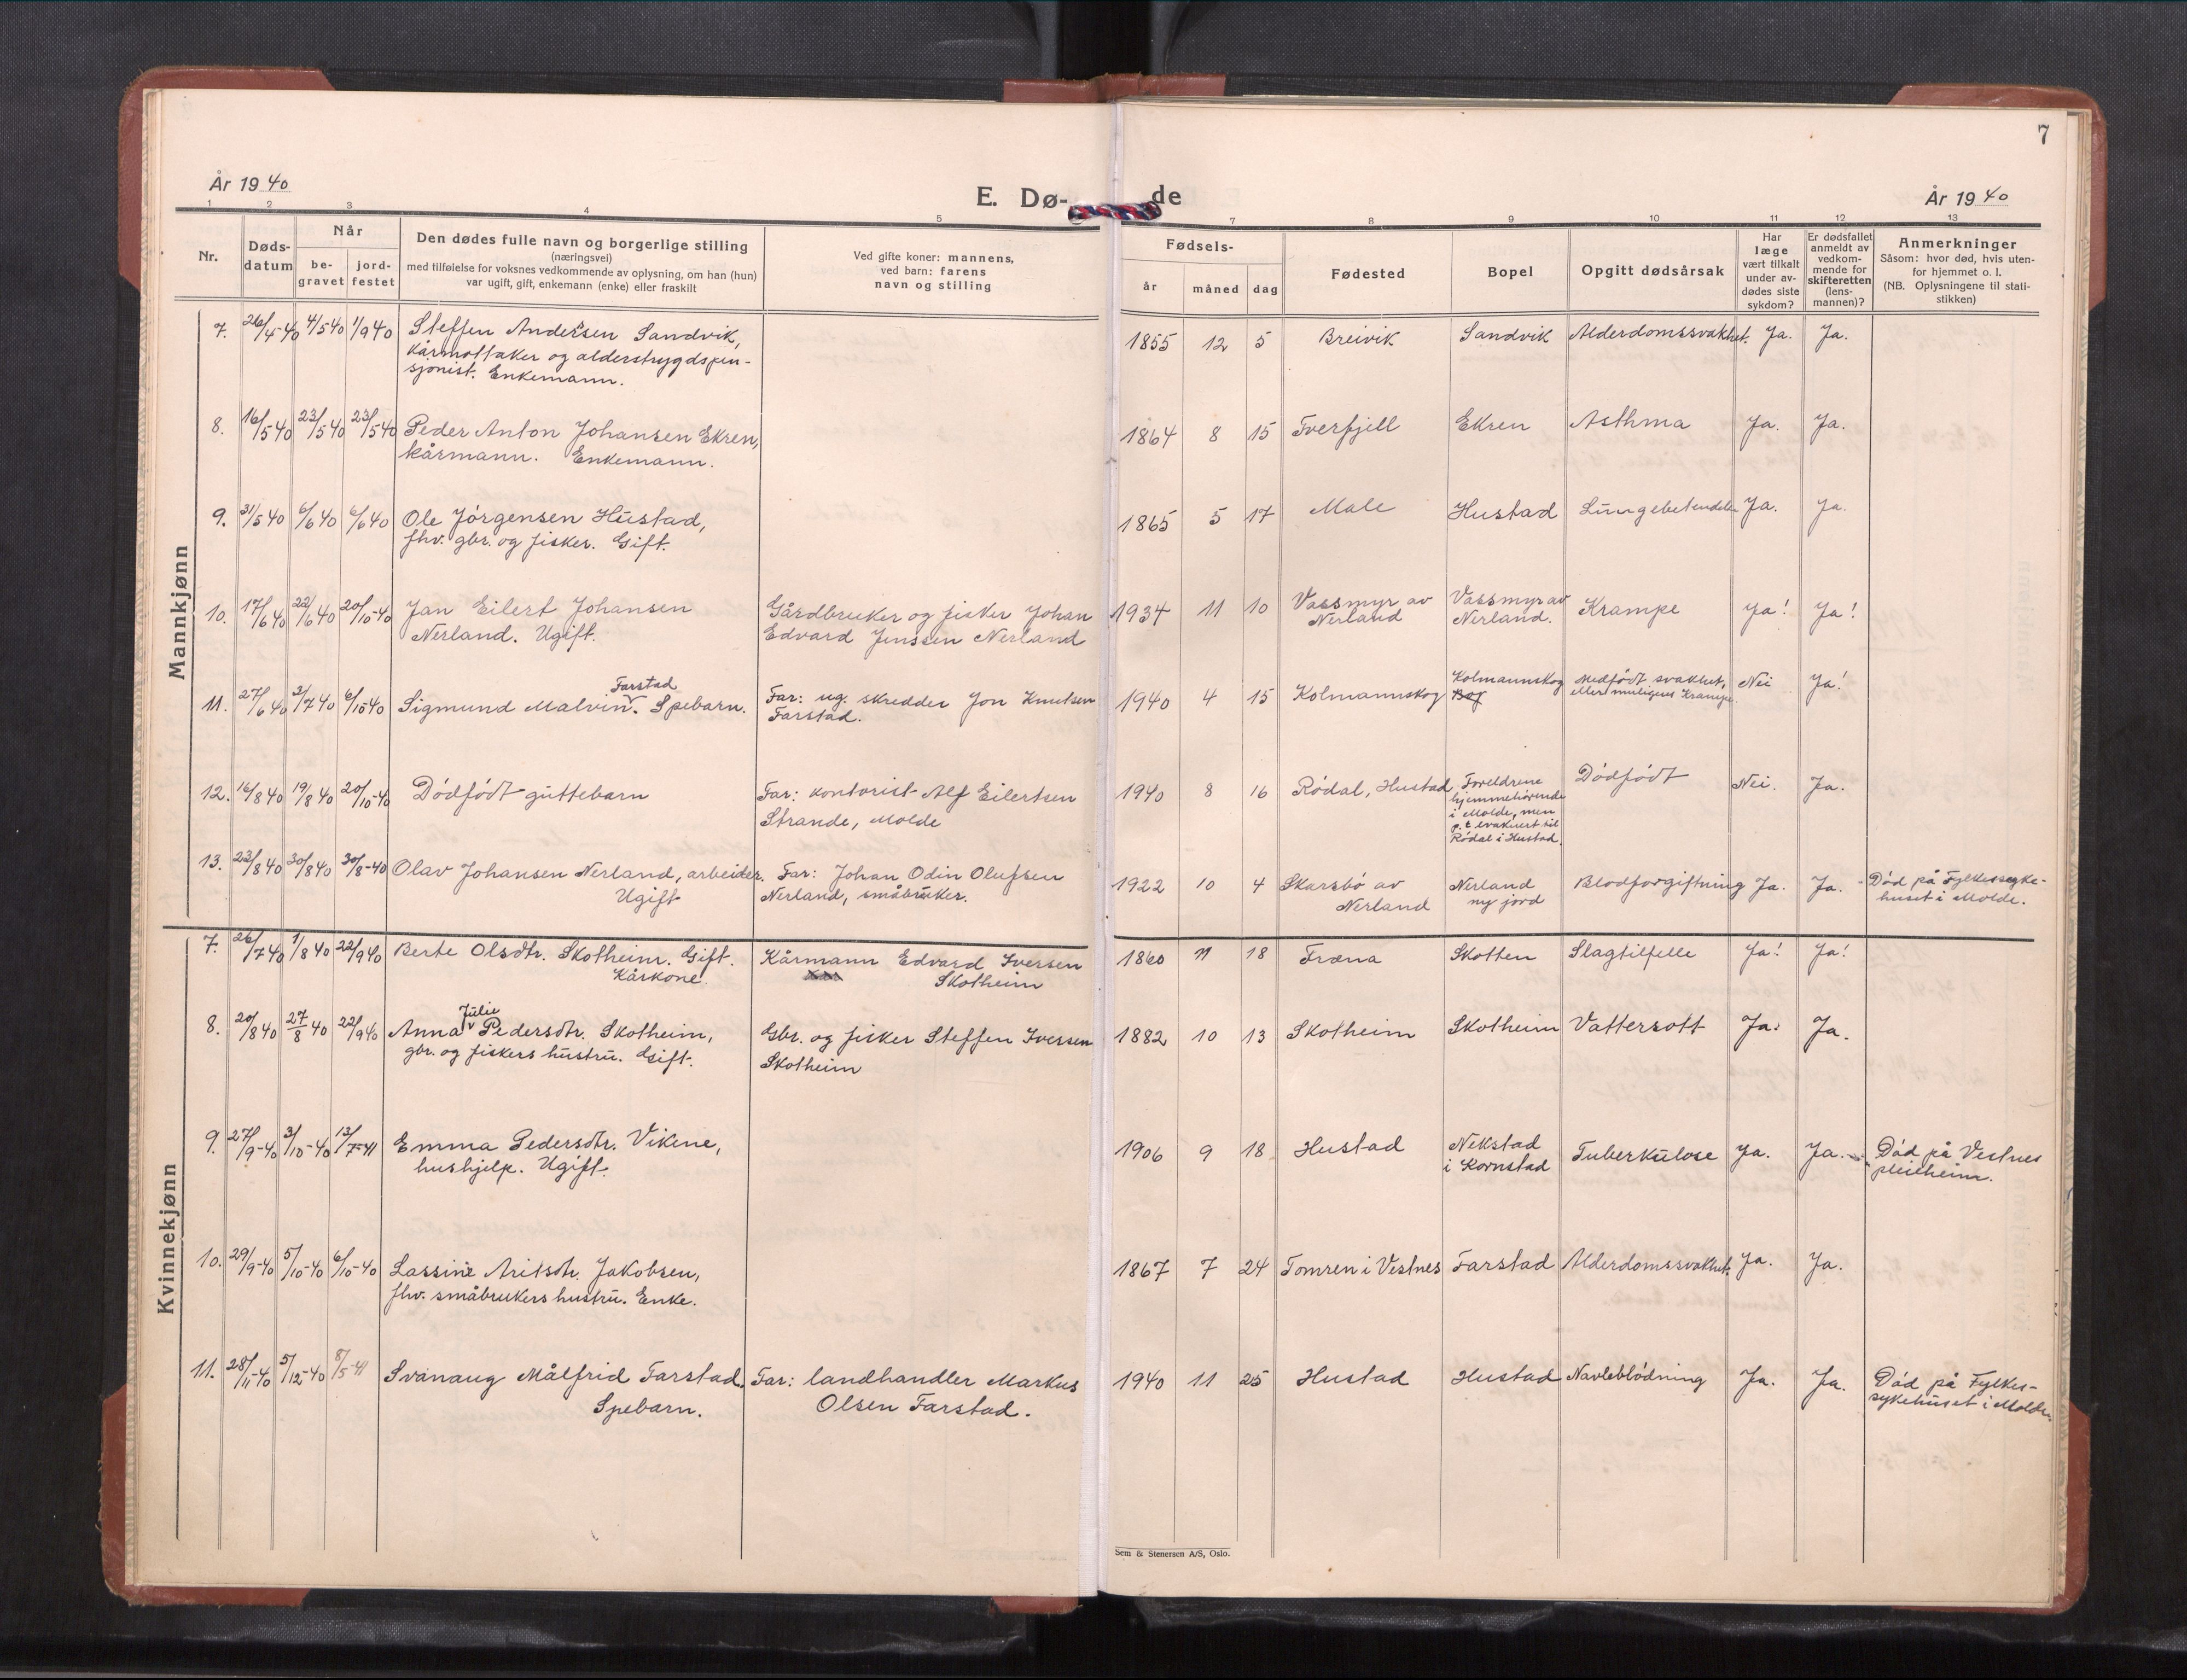 7
År 1940
E. Dø-
de
År 1940
1 2 3 4 5 7 8 9 10 11 12 13
Nr.
Døds-
datum
Når
be-
gravet
jord-
festet
Den dødes fulle navn og borgerlige stilling
(næringsvei)
med tilføielse for voksnes vedkommende av oplysning, om han (hun)
var ugift, gift, enkemann (enke) eller fraskilt
Ved gifte koner: mannens,
ved barn: farens
navn og stilling
Fødsels-
år måned dag
Fødested
Bopel
Opgitt dødsårsak
Har
læge
vært tilkalt
under av-
dødes siste
sykdom?
Er dødsfallet
anmeldt av
vedkom-
mende for
skifteretten
(lens-
mannen)?
Anmerkninger
Såsom: hvor død, hvis uten-
for hjemmet o. l.
(NB. Oplysningene til stati-
stikken)
Mannkjønn
7. 26/4 40 4/5 40 1/9 40 Steffen Andersen Sandvik, 1855 12 5 Breivik Sandvik Alderdomssvakhet. Ja. Ja.
kårmottaker og alderstrygdspen-
sjonist. Enkemann.
8. 16/5 40 23/5 40 23/5 40 Peder Anton Johansen Ekren, 1864 8 15 Tverfjell Ekren Asthma Ja. Ja.
kårmann. Enkemann.
9. 31/5 40 6/6 40 6/6 40 Ole Jørgensen Hustad, 1865 5 17 Male Hustad Lungebetendelse Ja. Ja.
fhv. gbr. og fisker. Gift.
10. 17/6 40 22/6 40 20/10-40 Jan Eilert Johansen Gårdbruker og fisker Johan 1934 11 10 Vassmyr av Vassmyr av Krampe Ja! Ja!
Nerland. Ugift. Edvard Jenssen Nerland Nerland Nerland.
11. 27/6 40 3/7 40 6/10 40 Sigmund Malvin Farstad. Spebarn. Far: ug. skredder Jon Knutsen 1940 4 15 Kolmannskog Kolmannskog Medfødt svakhet, Nei Ja!
Farstad. eller muligens Krampe.
12. 16/8 40 19/8 40 20/10-40 Dødfødt guttebarn Far: kontorist Alf Eilertsen 1940 8 16 Rødal, Hustad Foreldrene Dødfødt Nei. Ja.
Strande, Molde hjemmehørende
i Molde, men
p.t. evakuert til
Rødal i Hustad.
13. 23/8 40 30/8 40 30/8-40 Olav Johansen Nerland, arbeider. Far: Johan Odin Olufsen 1922 10 4 Skarsbø av Nerland Blodforgiftning Ja. Ja. Død på Fylkessyke-
Ugift Nerland, småbruker. Nerland ny jord huset i Molde.
Kvinnekjønn
7. 26/7 40 1/8 40 22/9 40 Berte Olsdtr. Skotheim. Gift. Kårmann Edvard Iversen 1860 11 18 Fræna Skotten Slagtilfelle Ja! Ja!
Kårkone. Skotheim
8. 20/8 40 27/8 40 22/9 40 Anna Julie Pedersdtr. Skotheim, Gbr. og fisker Steffen Iversen 1882 10 13 Skotheim Skotheim Vattersott Ja. Ja.
gbr. og fiskers hustru. Gift. Skotheim
9. 27/9-40 3/10-40 13/7-41 Emma Pedersdtr. Vikene, 1906 9 18 Hustad Nekstad Tuberkulose Ja. Ja. Død på Vestnes
hushjelp. Ugift. i Kornstad pleieheim.
10. 29/9-40 5/10-40 6/10-40 Lassine Aritsdtr. Jakobsen, 1867 7 24 Tomren i Vestnes Farstad Alderdomssvakhet. Ja. Ja.
fhv. småbrukers hustru. Enke.
11. 28/11-40 5/12-40 8/5-41 Svanaug Målfrid Farstad. Far: landhandler Markus 1940 11 25 Hustad Hustad Navleblødning Ja. Ja. Død på Fylkes-
Spebarn. Olsen Farstad. sykehuset i Molde.
Sem & Stenersen A/S, Oslo.